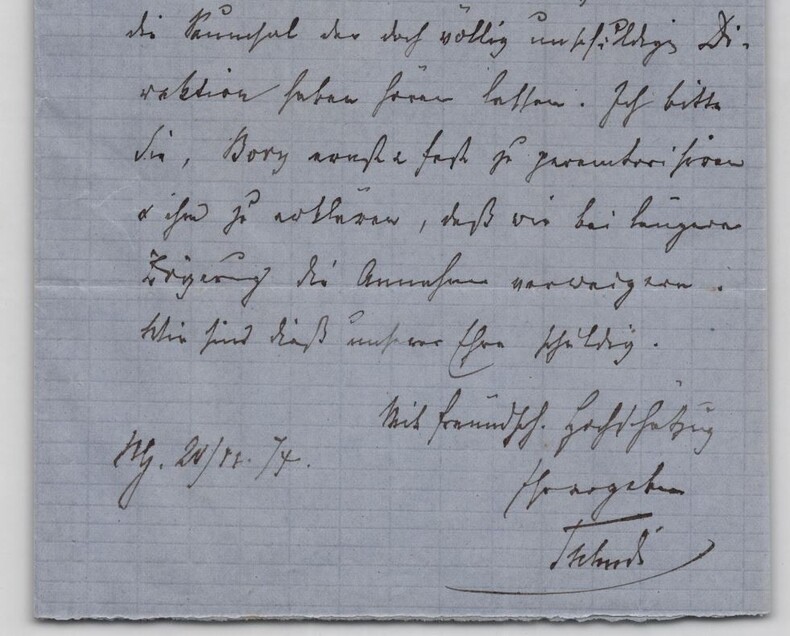 die Saumsal der doch völlig unschuldigen Di-
rektion haben hören lassen. Ich bitte
Sie, Bory ernst & fest zu peremtorisiren
& ihm zu erklären, daß wir bei längerer
Zögerung die Annahme verweigern.
Wir sind dieß unserer Ehre schuldig.
Mit freundsch. Hochschätzung
Ihr ergeben
Tschudi
/74.